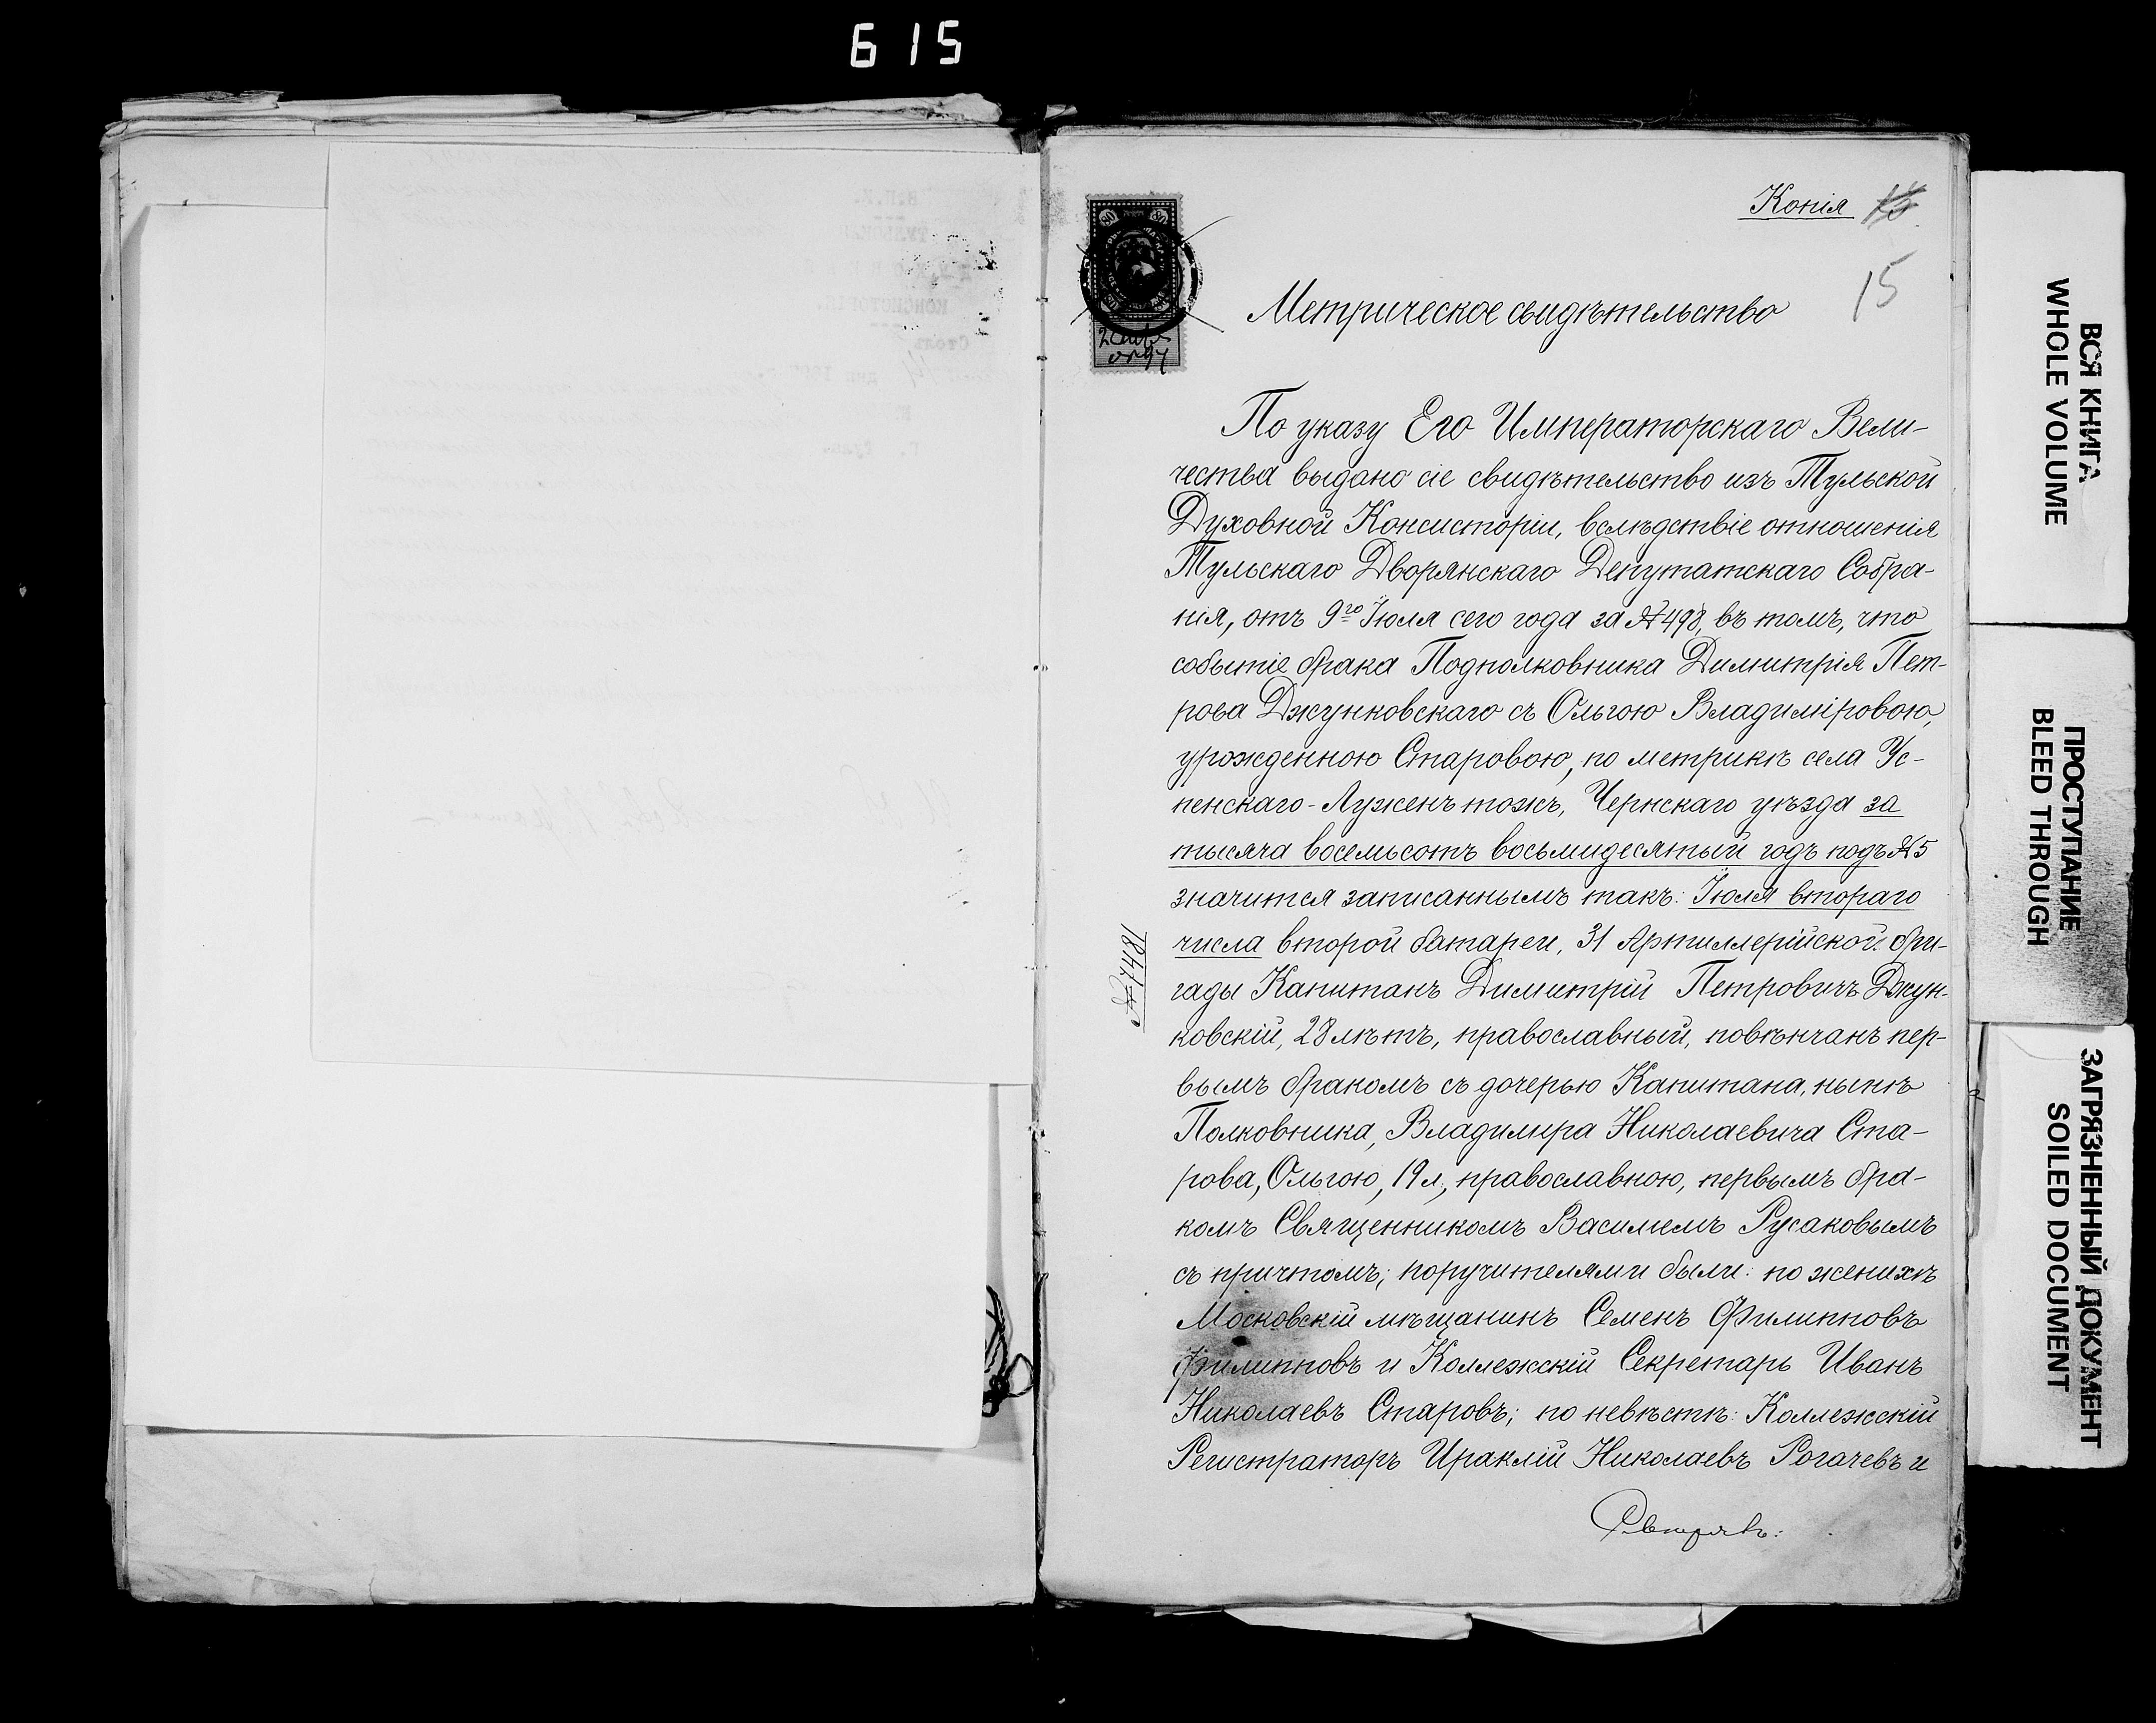 615
Копія
15
Метрическое свидѣтельство
По указу Его Императорскаго Вели-
чества выдано сіе свидѣтельство изъ Тульской
Духовной Консисторіи, вслѣдствіе отношенія
Тульскаго Дворянскаго Депутатскаго Собра-
нія, отъ 9го Іюля сего года за № 498, въ томъ, что
событіе брака Подполковника Димитрія Пет-
рова Джунковскаго съ Ольгою Владиміровою,
урожденною Старовою, по метрикѣ села Ус-
пенскаго-Луженъ тожъ, Чернскаго уѣзда за
тысяча восемьсотъ восьмидесятый годъ подъ № 5
значится записаннымъ такъ: Іюля втораго
числа второй батареи, 31 Артиллерійской бри-
гады Капитанъ Димитрій Петровичъ Джун-
ковскій, 28 лѣтъ, православный, повѣнчанъ пер-
вымъ бракомъ съ дочерью Капитана, нынѣ
Полковника, Владимира Николаевича Ста-
рова, Ольгою, 19 л, православною, первымъ бра-
комъ Священникомъ Василіемъ Русаковымъ
съ причтомъ; поручителями были: по женихѣ
Московскій мѣщанинъ Семенъ Филипповъ
Филипповъ и Коллежскій Секретарь Иванъ
Николаевъ Старовъ; по невѣстѣ: Коллежскій
Регистраторъ Ираклій Николаевъ Рогачевъ и
№ 7481
80 80
ВСЯ КНИГА
WHOLE VOLUME
ПРОСТУПАНИЕ
BLEED THROUGH
ЗАГРЯЗНЕННЫЙ ДОКУМЕНТ
SOILED DOCUMENT